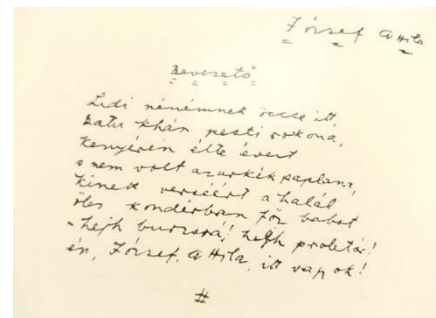 József Attila
Bevezető
Lidi nénémnek öccse itt,
Batu khán pesti rokona,
kenyéren élte éveit
s nem volt azurkék paplana,
kinek verséért a halál
öles kondérban főz babot
- hejh burzsoá! hejh proletár!
én, József Attila, itt vagyok!
#